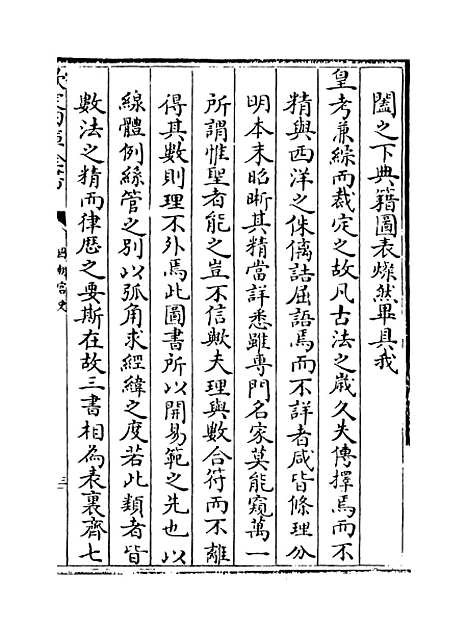 闔之下典籍圖表燦然畢具我
皇考兼綜而裁定之故凡古法之嵗久失傳擇焉而不
精與西洋之侏𠌯詰屈語焉而不詳者咸皆條理分
明本末昭晰其精當詳悉雖專門名家莫能窺萬一
所謂惟聖者能之豈不信歟夫理與數合符而不離
得其數則理不外焉此圖書所以開易範之先也以
線體例絲管之別以弧角求經緯之度若此類者皆
數法之精而律歴之要斯在故三書相為表裏齊七
欽定四庫全書
國朝宫史
三